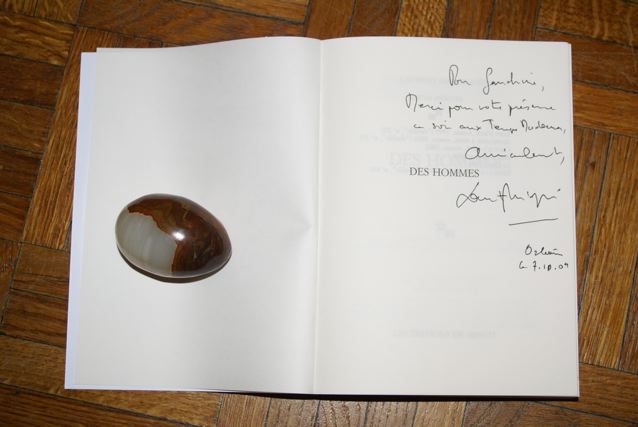 Pour Sandrine,
Merci pour votre présence
ce soir aux Temps Modernes,
Amicalement,
DES HOMMES
Orléans
le 7.10.09